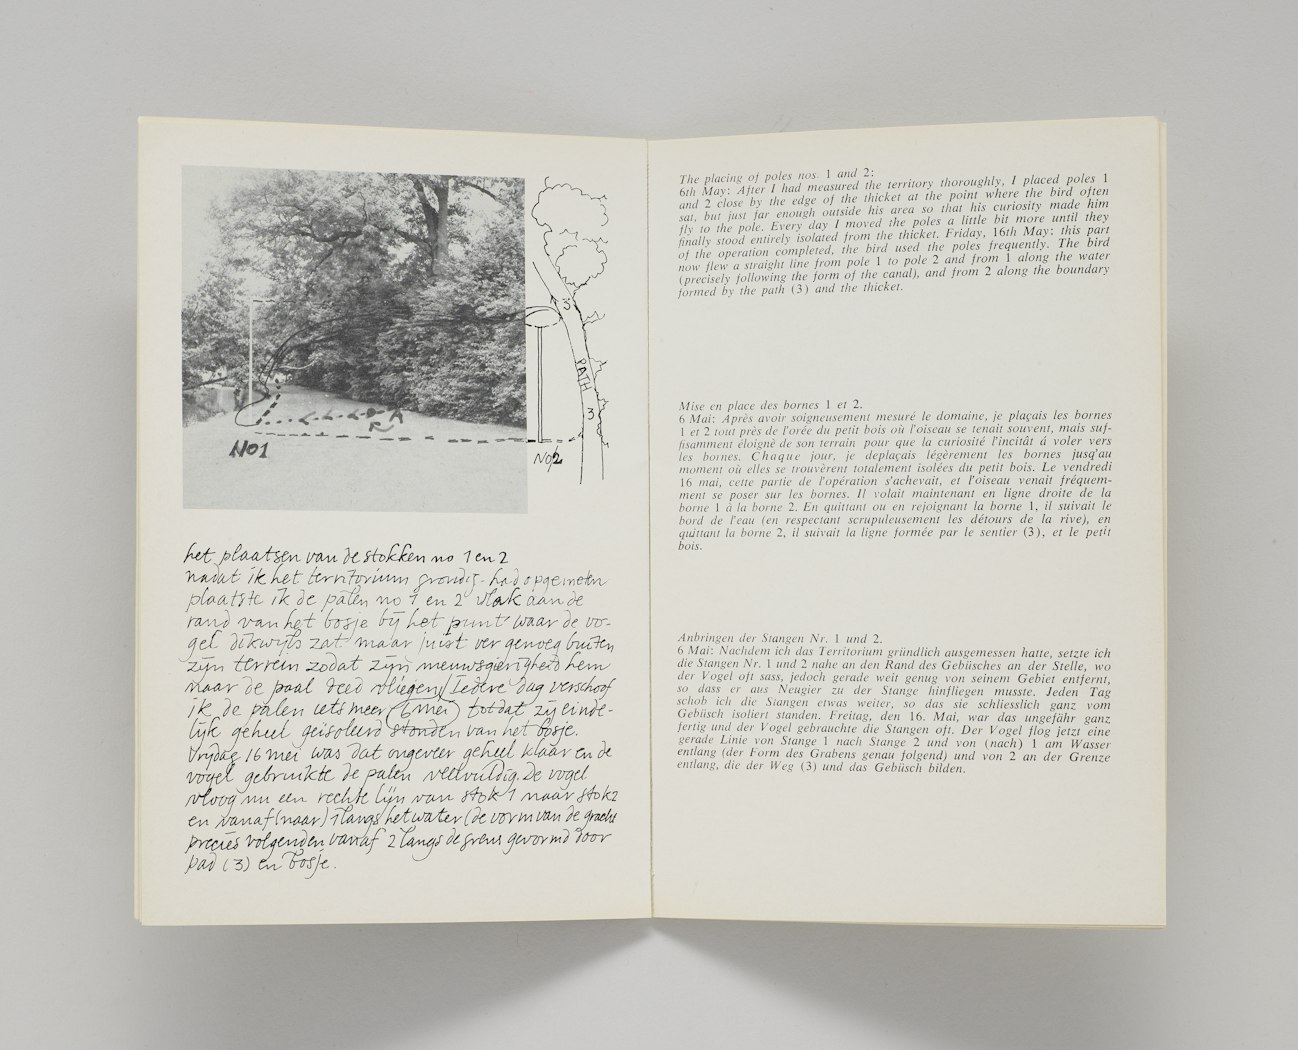 NO1
PATH
3
3
NO2
het plaatsen van de stokken no 1 en 2
nadat ik het territorium grondig had opgemeten
plaatste ik de palen no 1 en 2 vlak aan de
rand van het bosje bij het punt waar de vo-
gel dikwijls zat maar juist ver genoeg buiten
zijn terrein zodat zijn nieuwsgierigheid hem
naar de paal deed vliegen/Iedere dag verschoof
ik de palen iets meer (6 mei) totdat zij einde-
lijk geheel geisoleerd stonden van het bosje.
Vrijdag 16 mei was dat ongeveer geheel klaar en de
vogel gebruikte de palen veelvuldig. De vogel
vloog nu een rechte lijn van stok 1 naar stok 2
en vanaf (naar) 1 langs het water (de vorm van de gracht
precies volgend en vanaf 2 langs de grens gevormd door
pad (3) en bosje.
The placing of poles nos. 1 and 2:
6th May: After I had measured the territory thoroughly, I placed poles 1
and 2 close by the edge of the thicket at the point where the bird often
sat, but just far enough outside his area so that his curiosity made him
fly to the pole. Every day I moved the poles a little bit more until they
finally stood entirely isolated from the thicket. Friday, 16th May: this part
of the operation completed, the bird used the poles frequently. The bird
now flew a straight line from pole 1 to pole 2 and from 1 along the water
(precisely following the form of the canal), and from 2 along the boundary
formed by the path (3) and the thicket.
Mise en place des bornes 1 et 2.
6 Mai: Après avoir soigneusement mesuré le domaine, je plaçais les bornes
1 et 2 tout près de l'orée du petit bois où l'oiseau se tenait souvent, mais suf-
fisamment éloigné de son terrain pour que la curiosité l'incitât á voler vers
les bornes. Chaque jour, je deplaçais légèrement les bornes jusq'au
moment où elles se trouvèrent totalement isolées du petit bois. Le vendredi
16 mai, cette partie de l'opération s'achevait, et l'oiseau venait fréquem-
ment se poser sur les bornes. Il volait maintenant en ligne droite de la
borne 1 à la borne 2. En quittant ou en rejoignant la borne 1, il suivait le
bord de l'eau (en respectant scrupuleusement les détours de la rive), en
quittant la borne 2, il suivait la ligne formée par le sentier (3), et le petit
bois.
Anbringen der Stangen Nr. 1 und 2.
6 Mai: Nachdem ich das Territorium gründlich ausgemessen hatte, setzte ich
die Stangen Nr. 1 und 2 nahe an den Rand des Gebüsches an der Stelle, wo
der Vogel oft sass, jedoch gerade weit genug von seinem Gebiet entfernt,
so dass er aus Neugier zu der Stange hinfliegen musste. Jeden Tag
schob ich die Stangen etwas weiter, so das sie schliesslich ganz vom
Gebüsch isoliert standen. Freitag, den 16. Mai, war das ungefähr ganz
fertig und der Vogel gebrauchte die Stangen oft. Der Vogel flog jetzt eine
gerade Linie von Stange 1 nach Stange 2 und von (nach) 1 am Wasser
entlang (der Form des Grabens genau folgend) und von 2 an der Grenze
entlang, die der Weg (3) und das Gebüsch bilden.